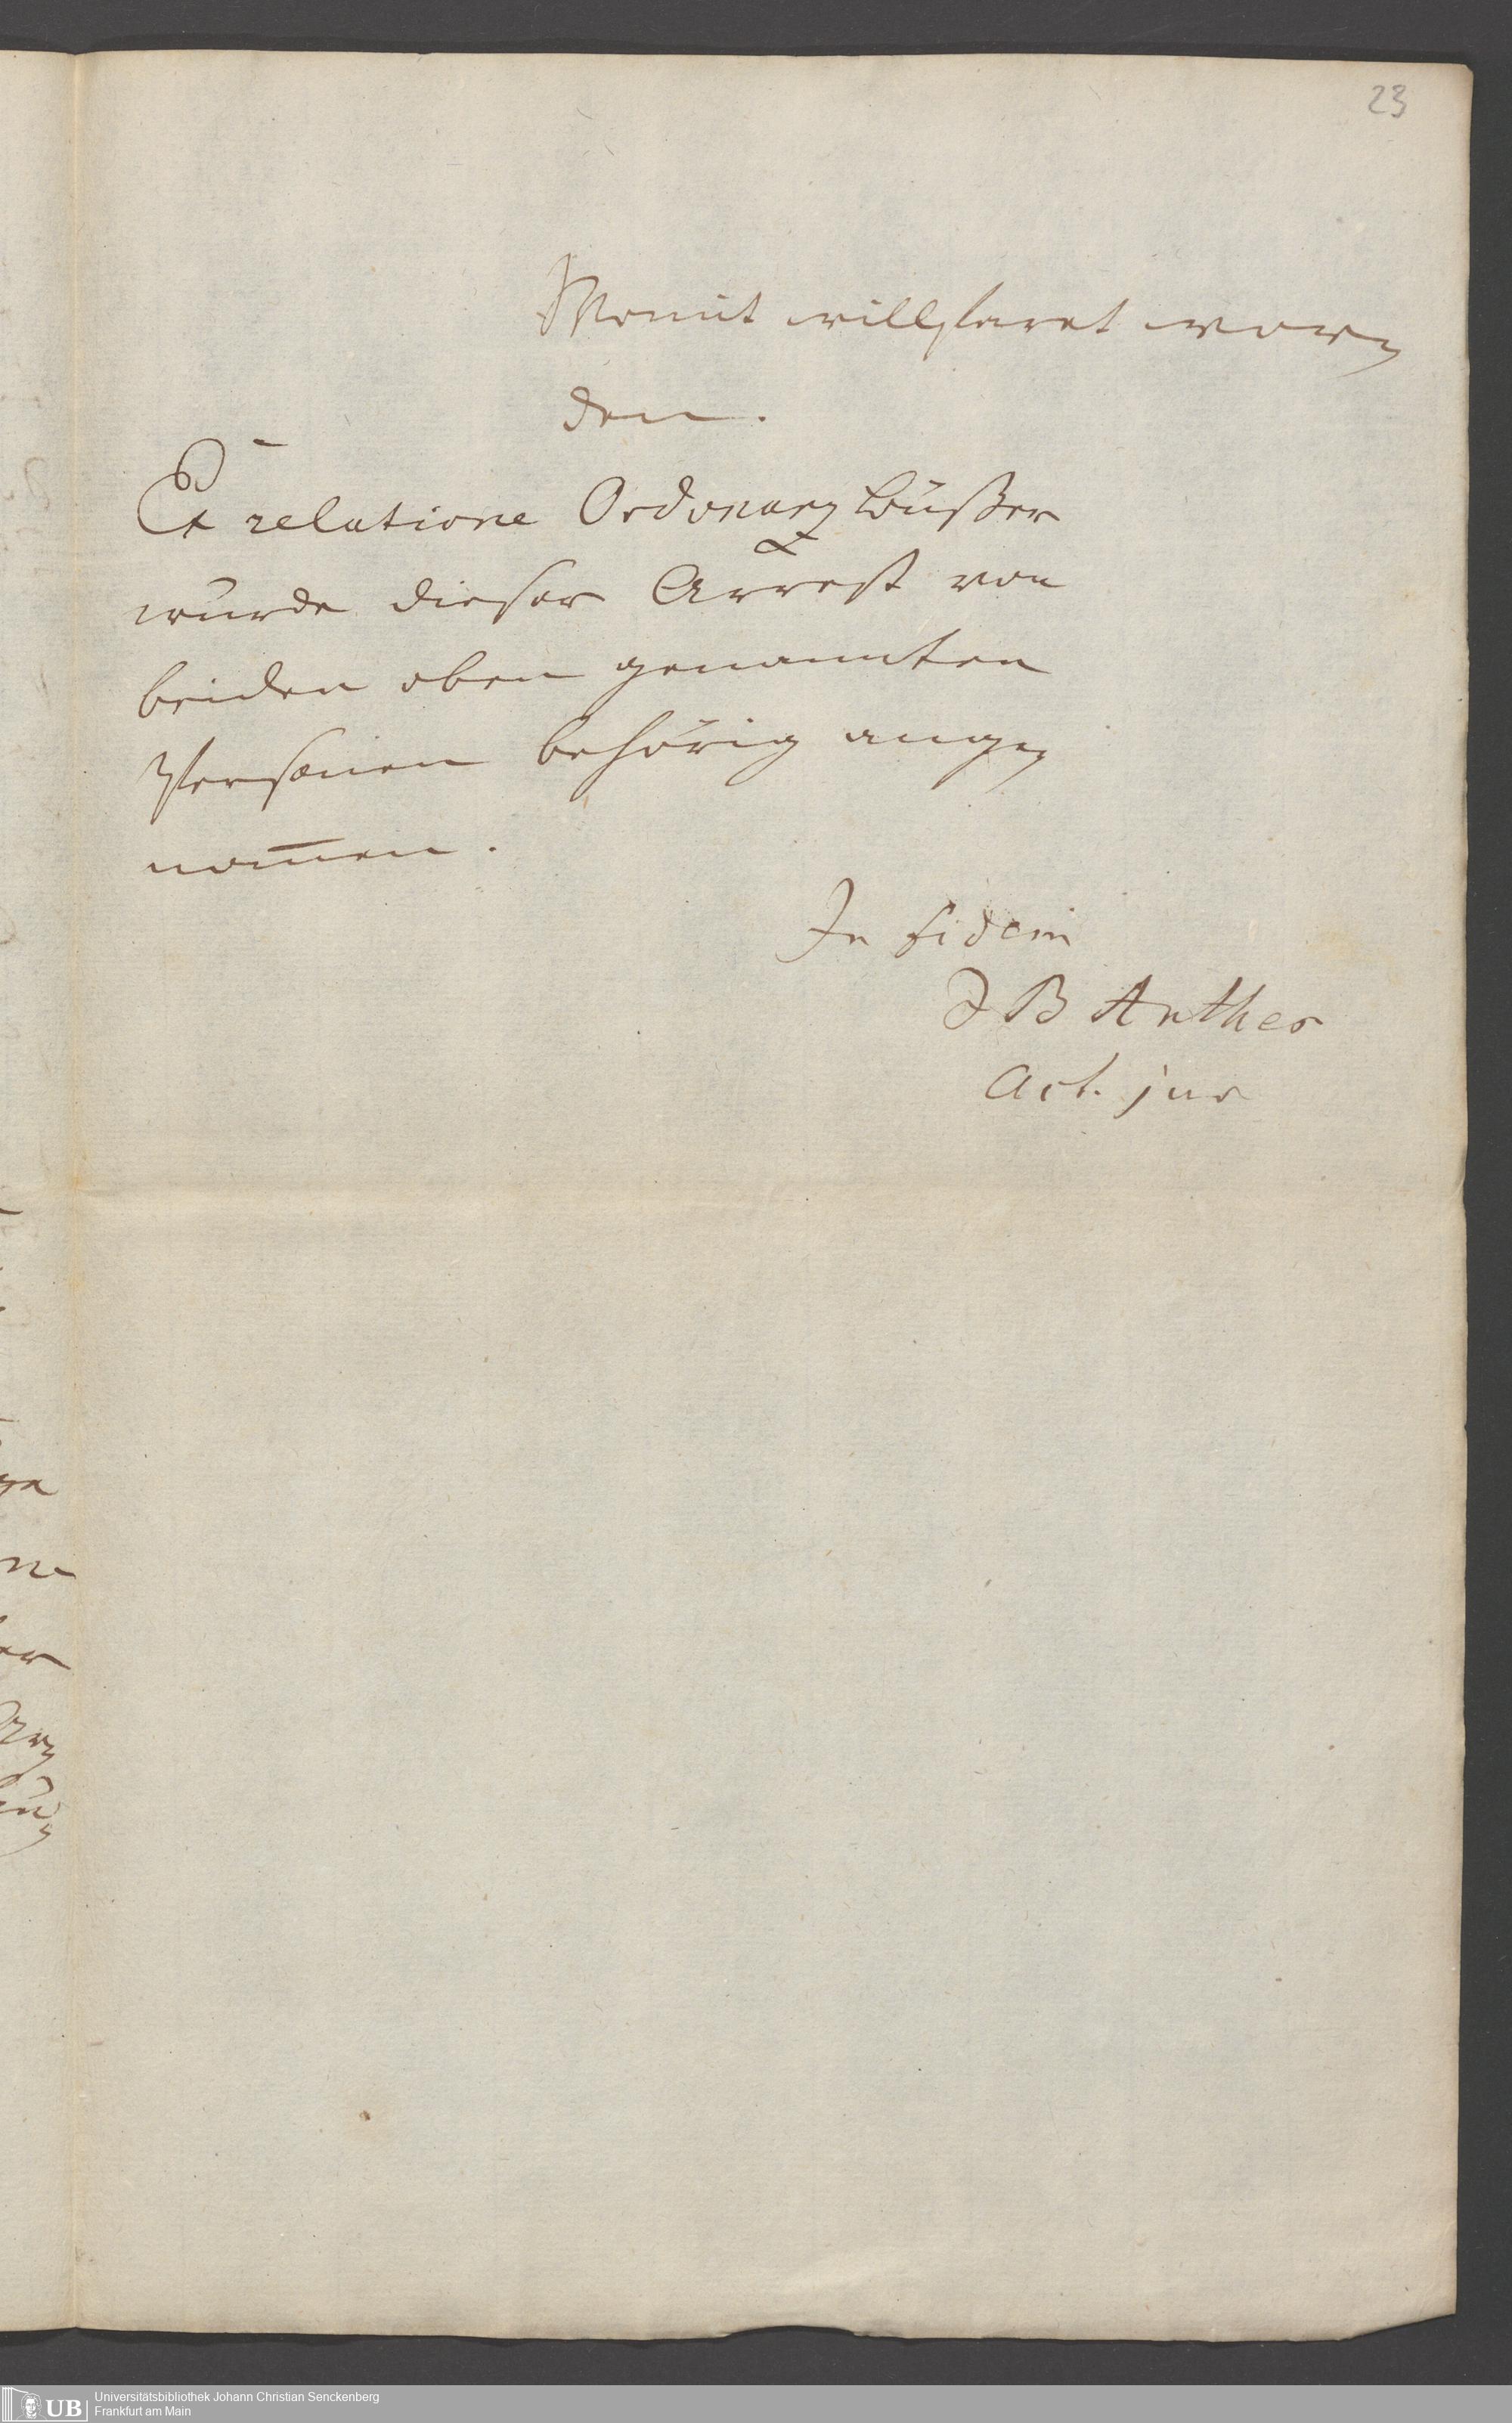 23
Womit willfahret wor-
den.
Ex relatione Ordonanz Büßer
wurde dieser Arrest von
beiden oben genannten
Personen behörig ange-
nom̄en.
In fidem
J B Anthes
Act. jur
Universitätsbibliothek Johann Christian Senckenberg
Frankfurt am Main
UB